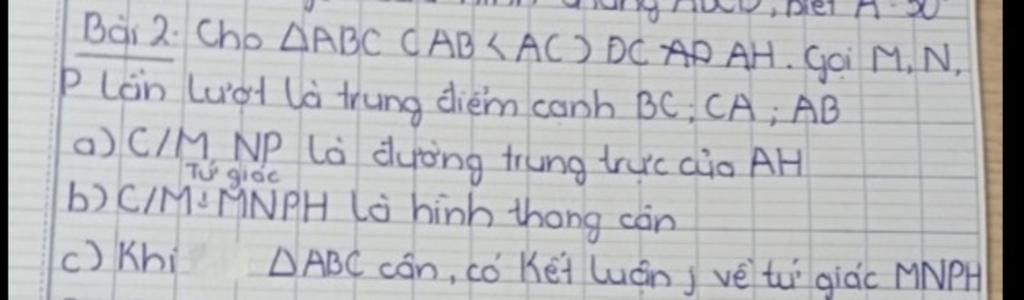 ABCD, biết A
Bài 2: Cho ΔABC (AB < AC) ĐC AH. Gọi M, N,
P lần lượt là trung điểm cạnh BC; CA; AB
a) C/M NP là đường trung trực của AH
Tứ giác
b) C/M: MNPH là hình thang cân
c) Khi ΔABC cân, có kết luận j về tứ giác MNPH